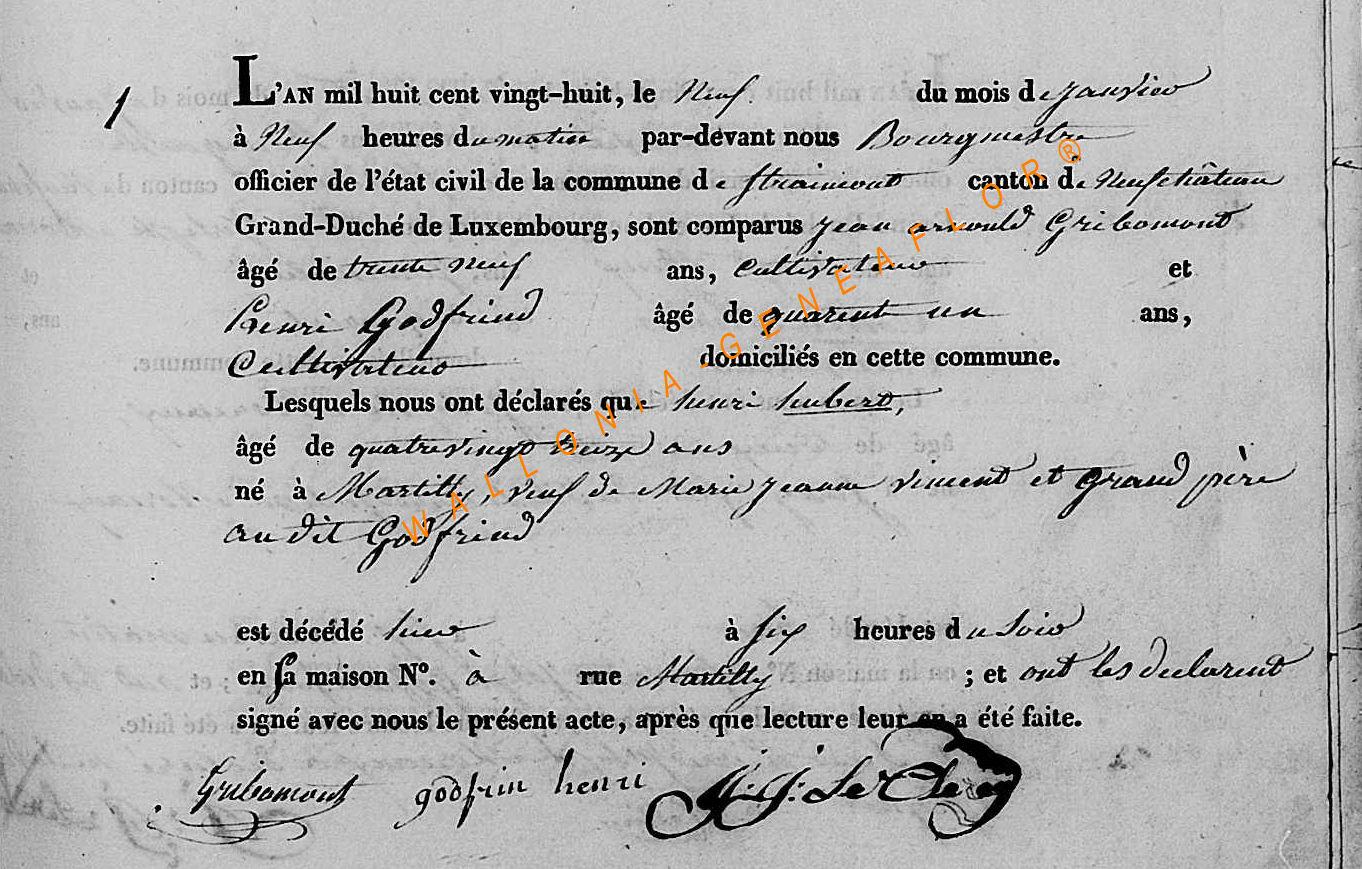 1
L'AN mil huit cent vingt-huit, le Neuf du mois de janvier
à Neuf heures du matin par-devant nous Bourgmestre
officier de l'état civil de la commune de straimont canton de Neufchâteau
Grand-Duché de Luxembourg, sont comparus jean arnould Gribomont
âgé de trente neuf ans, Cultivateur et
henri Godfriend âgé de quarent un ans,
Cultivateur domiciliés en cette commune.
Lesquels nous ont déclarés que henri hubert,
âgé de quatrevingt treize ans
né à Martilly, veuf de Marie jeanne vincent et grand père
au dit Godfriend
est décédé hier à six heures du soir
en sa maison N°. à rue Martilly ; et ont les declarent
signé avec nous le présent acte, après que lecture leur en a été faite.
Gribomont godfrin henri
WALLONIA-GENEAFLOR®